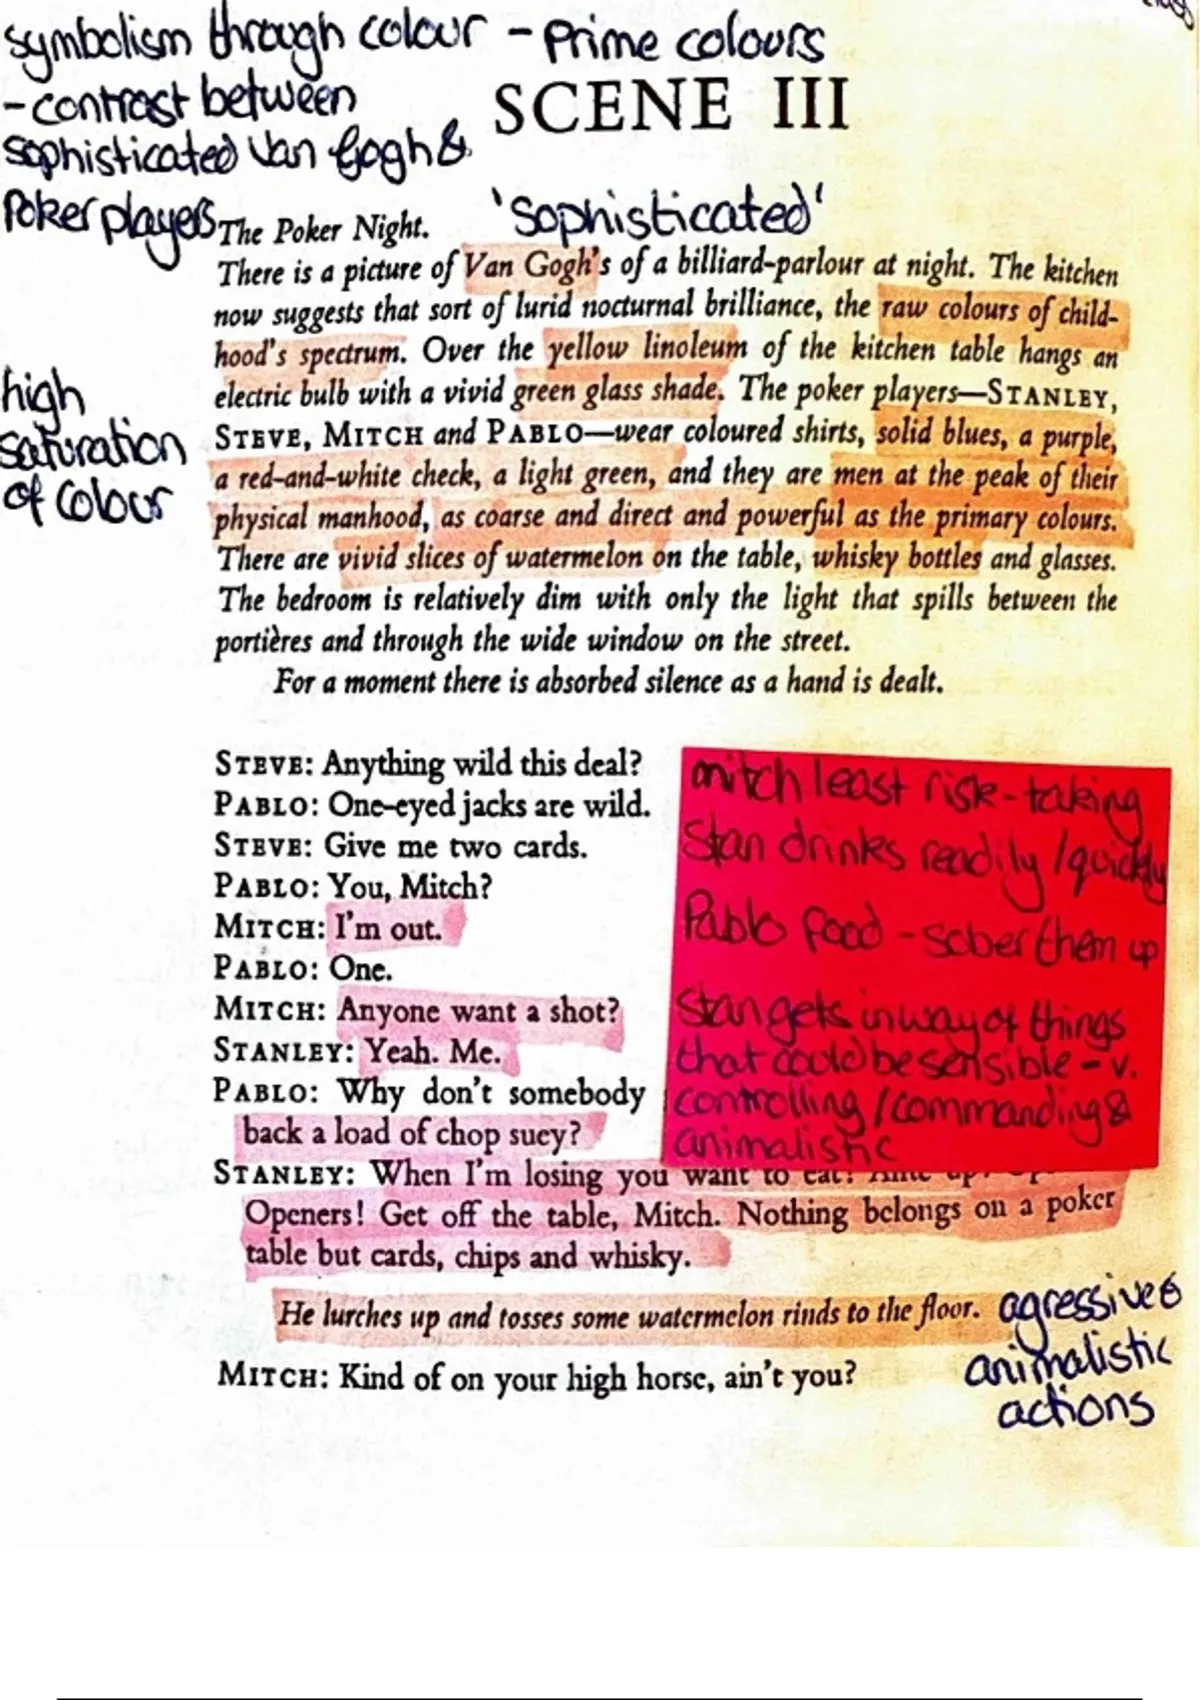 symbolism through colour - prime colours
- contrast between
sophisticated Van Gogh &
Poker players
SCENE III
'Sophisticated'
The Poker Night.
There is a picture of Van Gogh's of a billiard-parlour at night. The kitchen
now suggests that sort of lurid nocturnal brilliance, the raw colours of child-
hood's spectrum. Over the yellow linoleum of the kitchen table hangs an
electric bulb with a vivid green glass shade. The poker players—STANLEY,
STEVE, MITCH and PABLO—wear coloured shirts, solid blues, a purple,
a red-and-white check, a light green, and they are men at the peak of their
physical manhood, as coarse and direct and powerful as the primary colours.
There are vivid slices of watermelon on the table, whisky bottles and glasses.
The bedroom is relatively dim with only the light that spills between the
portières and through the wide window on the street.
For a moment there is absorbed silence as a hand is dealt.
high
saturation
of colour
STEVE: Anything wild this deal?
PABLO: One-eyed jacks are wild.
STEVE: Give me two cards.
PABLO: You, Mitch?
MITCH: I'm out.
PABLO: One.
MITCH: Anyone want a shot?
STANLEY: Yeah. Me.
PABLO: Why don't somebody
back a load of chop suey?
STANLEY: When I'm losing you want to eat! Ante up!
Openers! Get off the table, Mitch. Nothing belongs on a poker
table but cards, chips and whisky.
He lurches up and tosses some watermelon rinds to the floor.
MITCH: Kind of on your high horse, ain't you?
mitch least risk-taking
Stan drinks readily/quickly
Pablo food - sober them up
Stan gets in way of things
that could be sensible - v.
controlling/commanding &
animalistic
agressive &
animalistic
actions